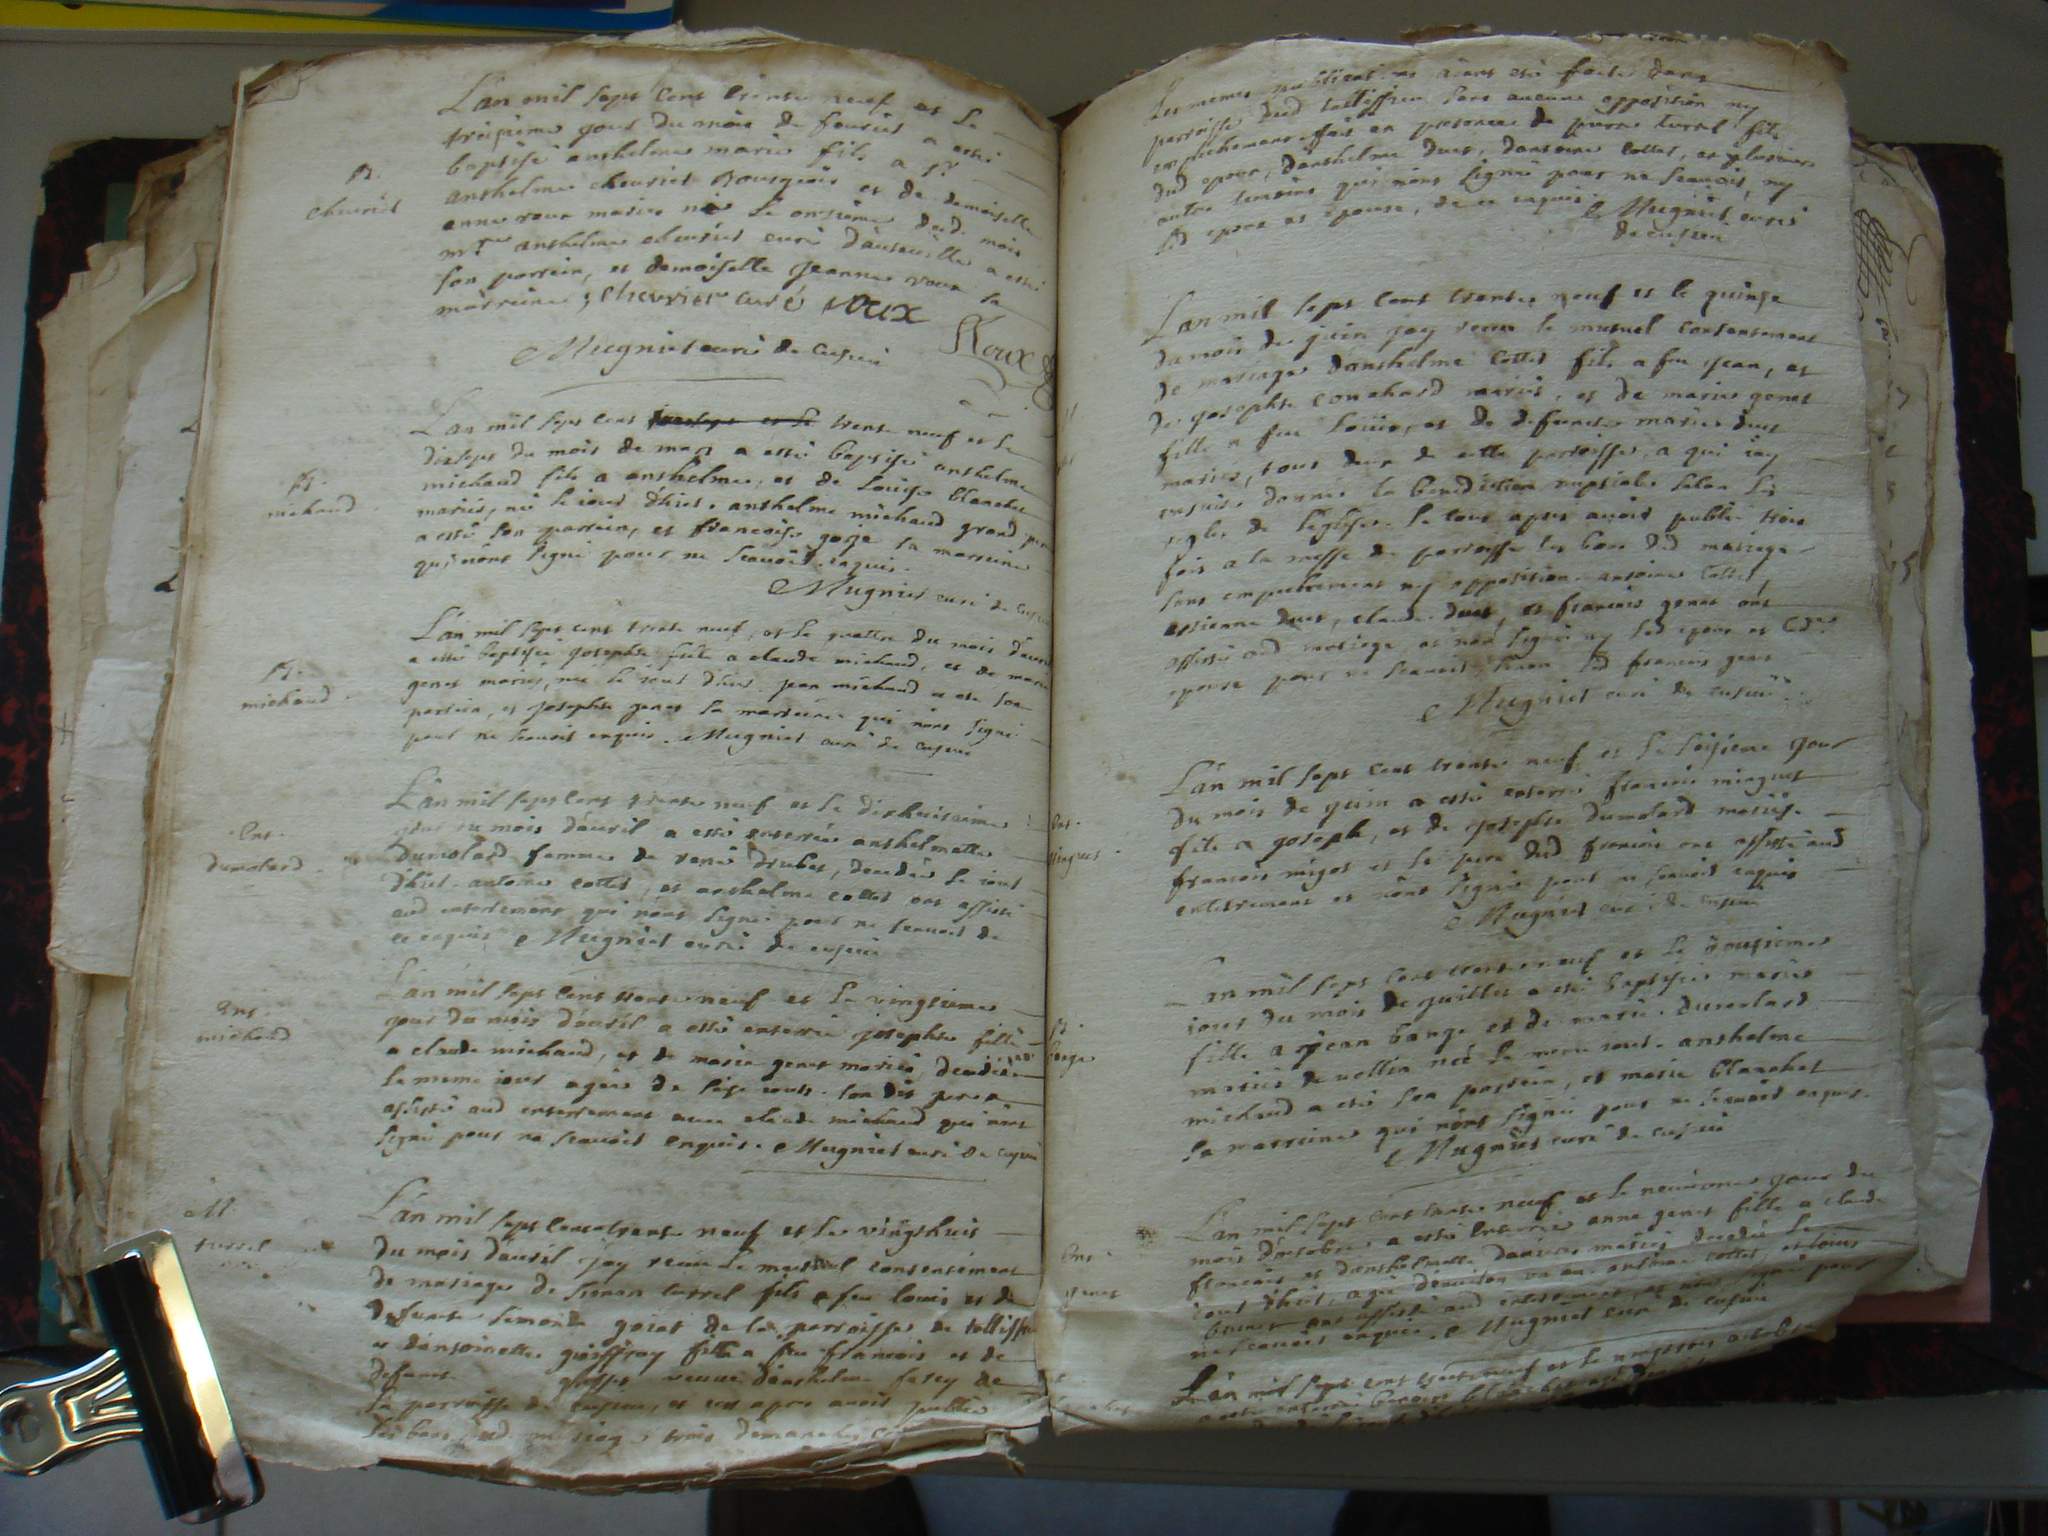 L'an mil sept cent trente neuf et le
treisieme jour du mois de feurier a esté
baptisé anthelme marie fils a Sr
B.
cheurier
anthelme cheurier Bourgeois et de demoiselle
anne roux maries né le onsieme dud. mois
mre anthelme cheurier curé a esté
son parrein, et demoiselle jeanne roux sa
marreine, chevrier curé roux
Roux
Mugniet curé de cuseui
L'an mil sept cent trente neuf et le
dixsept du mois de mars a esté baptisé anthelme
B.
michaud
michaud fils a anthelme, et de louise blanchet
mariés, né le iour d'hier. anthelme michaud grand pere
a esté son parrein, et francoise gorge sa marreine
qui n'ont signé pour ne scauoir enquis.
Mugniet curé de
L'an mil sept cent trente neuf, et le quattre du mois d'auril
a esté baptisée josephte fille a claude michaud, et de marie
B.
michaud
genet mariés, née le iour d'hier. jean michaud a esté son
parrein, et josephte genet sa marreine qui n'ont signé
pour ne scauoir enquis. Mugniet curé de cuseui
L'an mil sept cent trente neuf et le dixhuitieme
jour du mois d'auril a esté enterrée anthelmette
Ent.
dumolard
dumolard femme de rené drubet, decedée le iour
d'hier. antoine cottet, et anthelme cottet ont assisté
aud enterrement qui n'ont signé pour ne scauoir de
ce enquis Mugniet curé de cuseui
L'an mil sept cent trente neuf et le vingtieme
jour du mois d'auril a esté enterrée josephte fille
Ent.
michaud
a claude michaud, et de marie genet mariés, decedée
le meme iour agée de seise iours. son dit pere a
assisté aud enterrement auec claude michaud qui n'ont
signé pour ne scauoir enquis. Mugniet curé de cuseui
M.
turrel
L'an mil sept cent trente neuf et le vingthuit
du mois d'auril jay receu le mutuel consentement
de mariage de simon turrel fils a feu louis et de
defunte simonde goiet de la parroisse de
et d'antoinette goiffray fille a feu francois et de
defunte veuue d'anthelme de
la parroisse de cuseui, et ce apres auoir publié
les bans dud mariage trois demanches
les memes publications aiant esté faites dans
parroisse dud sans aucune opposition ny
empechement. fait en presence de pierre turrel fils
dud epoux, d'anthelme duet, d'antoine cottet, et plusieurs
autre temoins qui n'ont signé pour ne scauoir, ny
led epoux et epouse, de ce enquis Mugniet curé
de cuseui
L'an mil sept cent trente neuf et le quinse
du mois de juin jay receu le mutuel consentement
de mariage d'anthelme cottet fils a feu jean, et
de josephte couchard mariés, et de marie genet
fille a feu louis, et de defunte marie duet
mariés, tous deux de cette parroisse, a qui iay
ensuite donné la benediction nuptiale selon les
regles de l'eglise. le tout apres auoir publié trois
fois a la messe de parroisse les bans dud mariage
sans empechement ny opposition. antoine cottet,
estienne duet, claude duet, et francois genet ont
assisté aud mariage, et non signé ny led epoux et
epouse pour ne scauoir, sinon led francois genet
Mugniet curé de cuseui
L'an mil sept cent trente neuf et le seisieme jour
du mois de juin a esté enterré francois minguet
Ent.
fils a joseph, et de josephte dumolard mariés.
francois migot et le pere dud francois ont assisté aud
enterrement et n'ont signé pour ne scauoir enquis
Mugniet curé de cuseui
L'an mil sept cent trente neuf et le dousieme
iour du mois de juillet a esté baptisée marie
B.
bange
fille a jean bange et de marie dumolard
mariés de née le meme iour. anthelme
michaud a esté son parrein, et marie blanchet
sa marreine qui n'ont signé pour ne scauoir enquis.
Mugniet curé de cuseui
L'an mil sept cent trente neuf et le neuuieme jour du
mois d'octobre a esté enterrée anne genet fille a claude
Ent.
genet
francois et d'anthelmette mariés decedée le
iour d'hier, agée d'enuiron un an. anthelme cottet, et louis
brunet ont assisté aud enterrement, et non signé pour
ne scauoir enquis. Mugniet curé de cuseui
L'an mil sept cent trente neuf et le octobre
a esté enterré blanchet